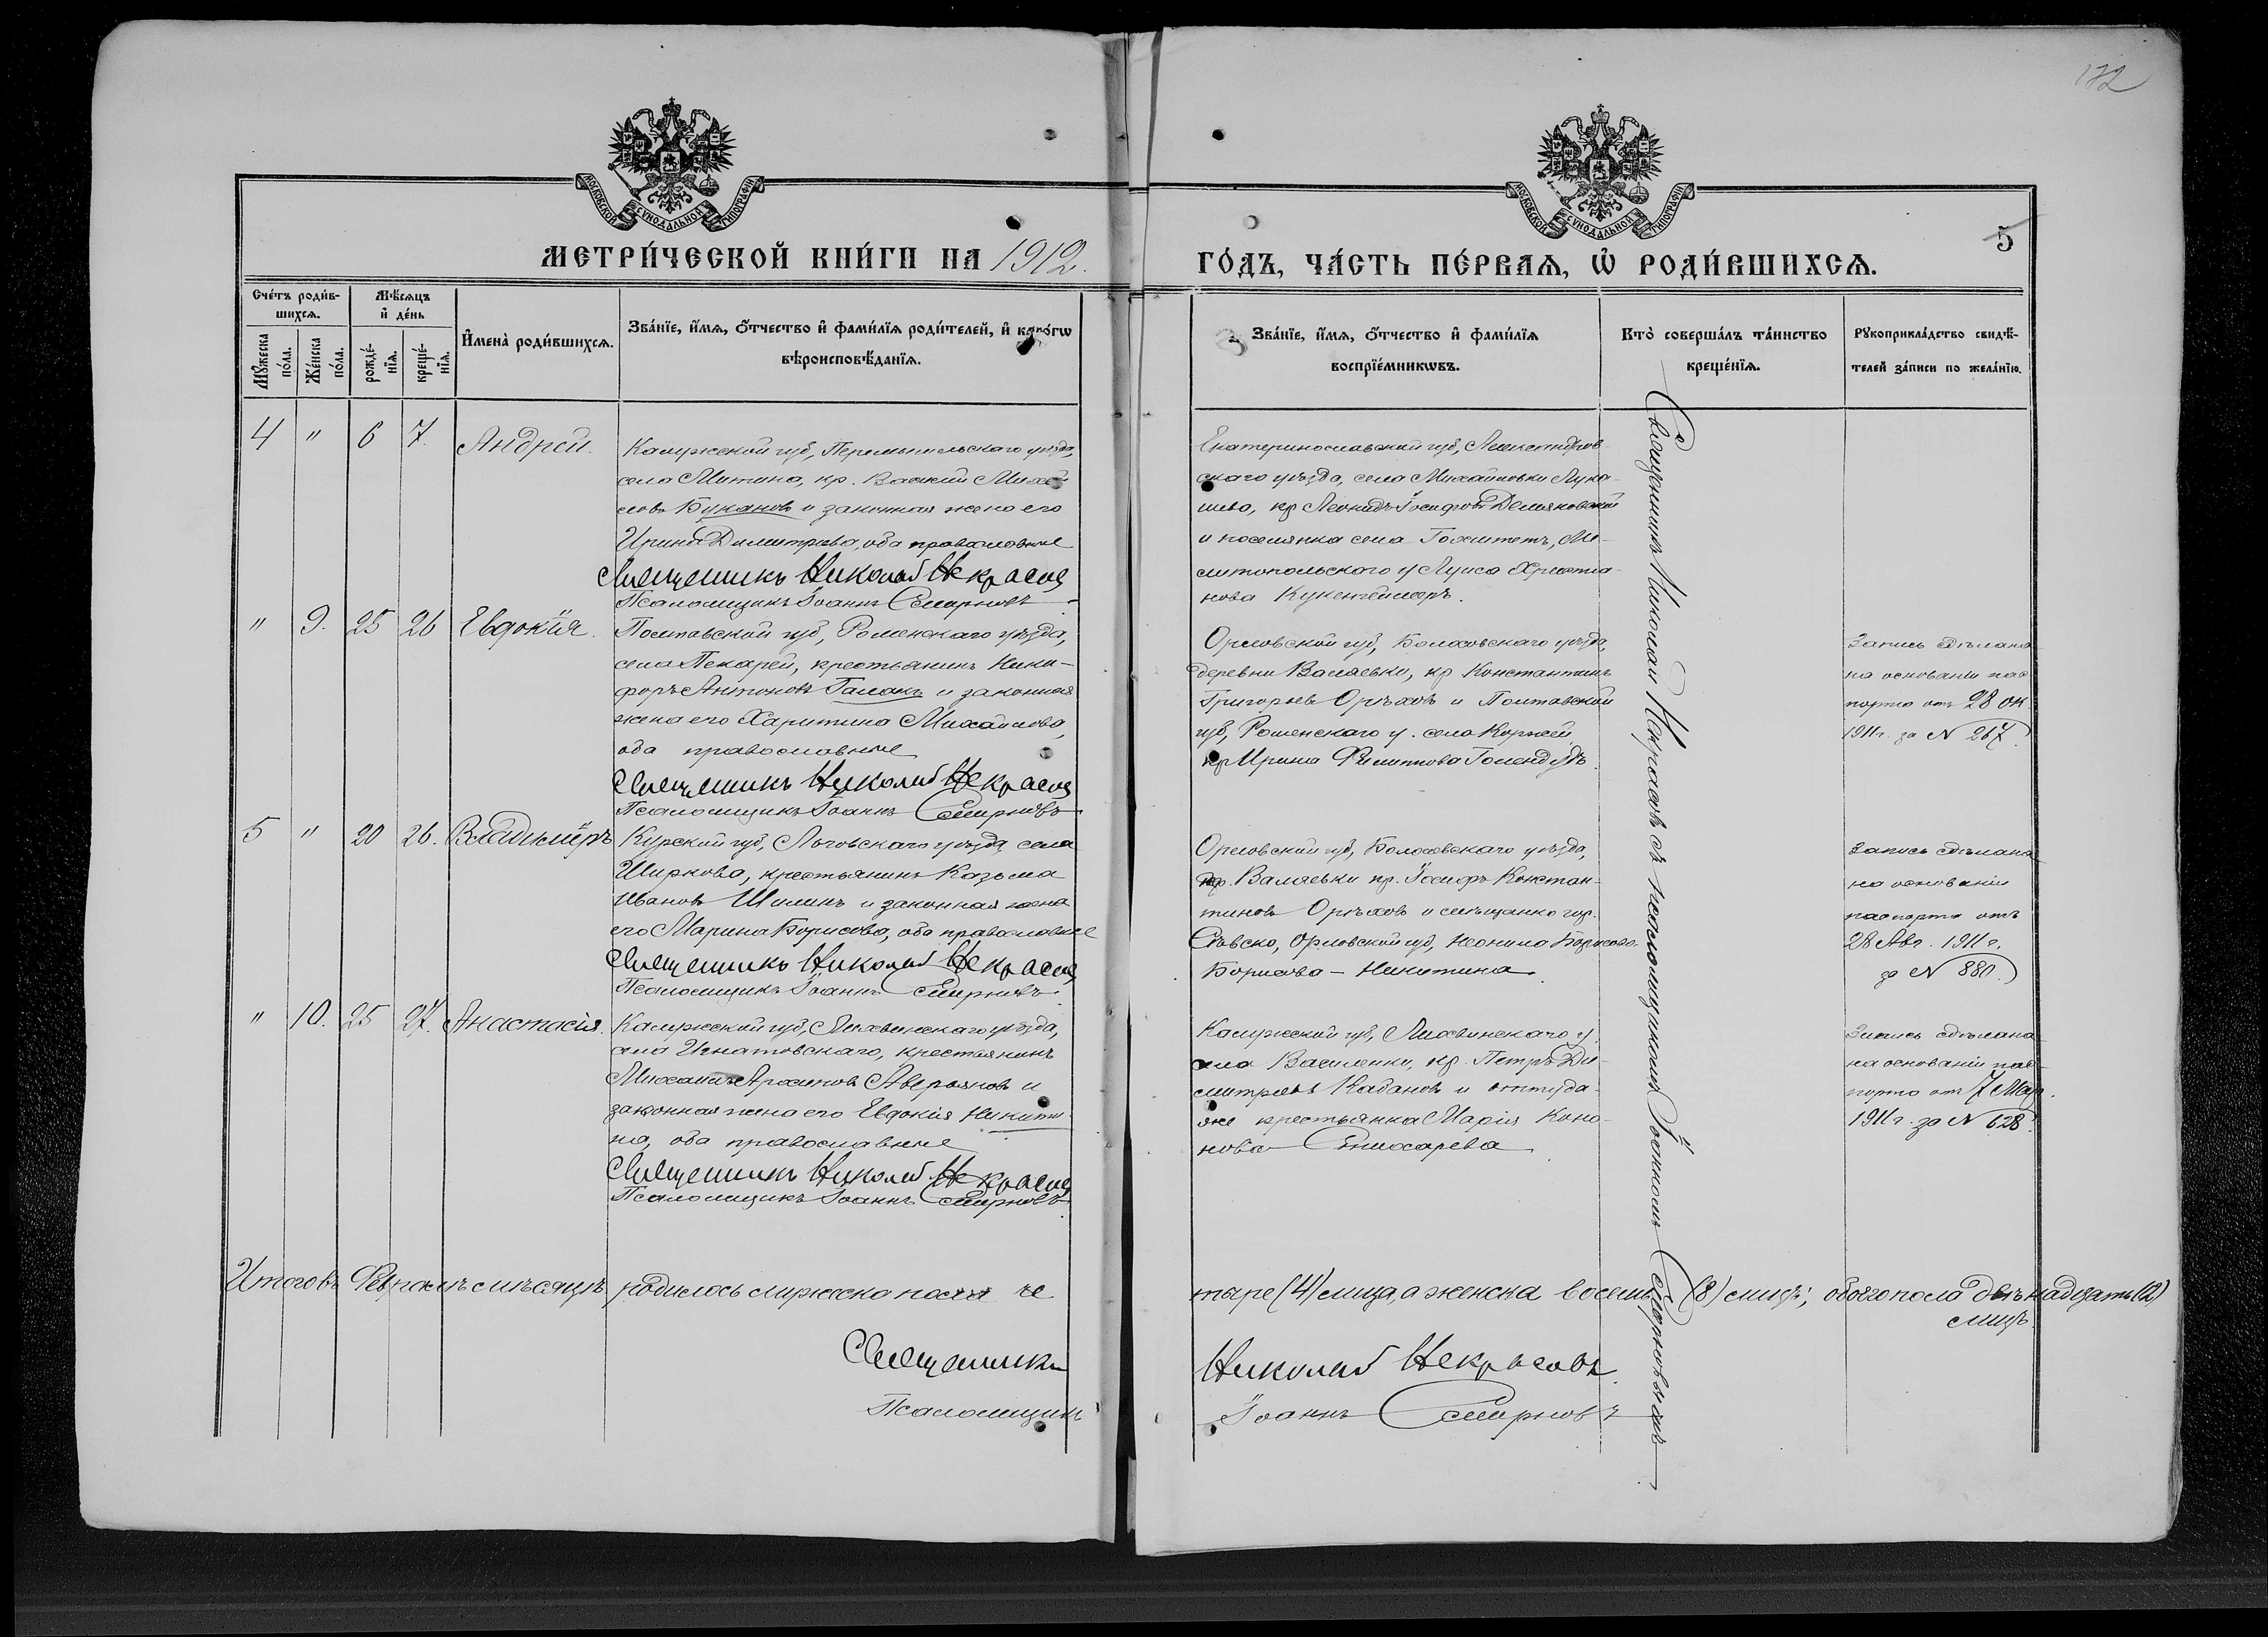 172
МОСКОВСКОЙ СУНОДАЛЬНОЙ ТИПОГРАФІИ
МОСКОВСКОЙ СУНОДАЛЬНОЙ ТИПОГРАФІИ
5
МЕТРИ́ЧЕСКОЙ КНИ́ГИ НА 1912.
ГО́ДЪ, ЧА́СТЬ ПЕ́РВАѦ, Ѡ҆ РОДИ́ВШИХСѦ.
Сче́тъ роди́в-
шихсѧ.
Мѣ́сѧцъ
и҆ де́нь
Мꙋ́жеска
по́ла.
Же́нска
по́ла.
рожде́-
нїѧ.
креще́-
нїѧ.
И҆мена̀ роди́вшихсѧ.
Зва́нїе, и҆́мѧ, ѻ҆́тчество и҆ фами́лїѧ роди́телей, и҆ како́гѡ
вѣроисповѣ́данїѧ.
Зва́нїе, и҆́мѧ, ѻ҆́тчество и҆ фами́лїѧ
воспрїе́мникѡвъ.
Кто̀ соверша́лъ та́инство
креще́нїѧ.
Рꙋкоприкла́дство свидѣ́-
телей за́писи по жела́нїю.
4 " 6 7. Андрей.
Калужской губ, Перемышльскаго уѣзда,
села Митина, кр. Василій Михай
ловъ Букановъ и законная жена его
Ирина Димитріева, оба православные
Священникъ Николай Некрасов
Псаломщикъ Іоаннъ Смирновъ
Екатеринославской губ, Александров
скаго уѣзда, села Михайловки Лука
шево, кр Леонидъ Іосифовъ Демяновскій
и поселянка села Гохштетъ, Ме-
литопольского у Луиса Христиа-
нова
" 9. 25 26 Евдокія.
Полтавской губ, Роменскаго уѣзда,
села Пекарей, крестьянинъ Ники-
форъ Антоновъ Галакъ и законная
жена его Харитина Михайлова,
оба православные
Священникъ Николай Некрасов
Псаломщикъ Іоаннъ Смирновъ
Орловской губ, Болховскаго уѣзда,
деревни Валяевки, кр Константинъ
Григорьевъ Орѣховъ и Полтавской
губ, Роменскаго у. села Коржей
кр Ирина Филиппова Голендудъ
Запись сдѣлана
на основаніи пас
порта отъ 28 ок
1911 г. за N 267
5 " 20 26. Владиміръ
Курской губ, Льговскаго уѣзда села
Ширкова, крестьянинъ Козьма
Ивановъ Шилинъ и законная жена
его Марина Борисова, оба православные
Священникъ Николай Некрасов
Псаломщикъ Іоаннъ Смирновъ
Орловской губ, Болховскаго уѣзда,
Валяевки кр. Іосифъ Констан-
тиновъ Орѣховъ и мѣщанка гор.
Сѣвска, Орловской губ, Неонила Борисова
Борисова - Никитина
Запись сдѣлана
на основаніи
паспорта отъ
28 Авг. 1911 г.
за N 880.
" 10. 25 27. Анастасія.
Калужской губ, Лихвинскаго уѣзда,
села Игнатовскаго, крестьянинъ
Михаилъ Архиповъ Аверьяновъ и
законная жена его Евдокія Никити
на, оба православные
Священникъ Николай Некрасов
Псаломщикъ Іоаннъ Смирновъ
Калужской губ, Лихвинскаго у.
села Василенки, кр. Петръ Ди-
митріевъ Кабановъ и оттуда-
же крестьянка Марія Коно-
нова Енихарева
Запись сдѣлана
на основаніи пас-
порта отъ 7 Мар.
1911 г. за N 628.
Священникъ Николай Некрасовъ съ псаломщикомъ Іоанномъ Смирновымъ
Итого въ Февралѣ мѣсяцѣ родилось мужеска пола че
тыре (4) лица, а женска восемь (8) лицъ; обоего пола двѣнадцать (12)
лицъ.
Священникъ Николай Некрасовъ
Псаломщикъ Іоаннъ Смирновъ